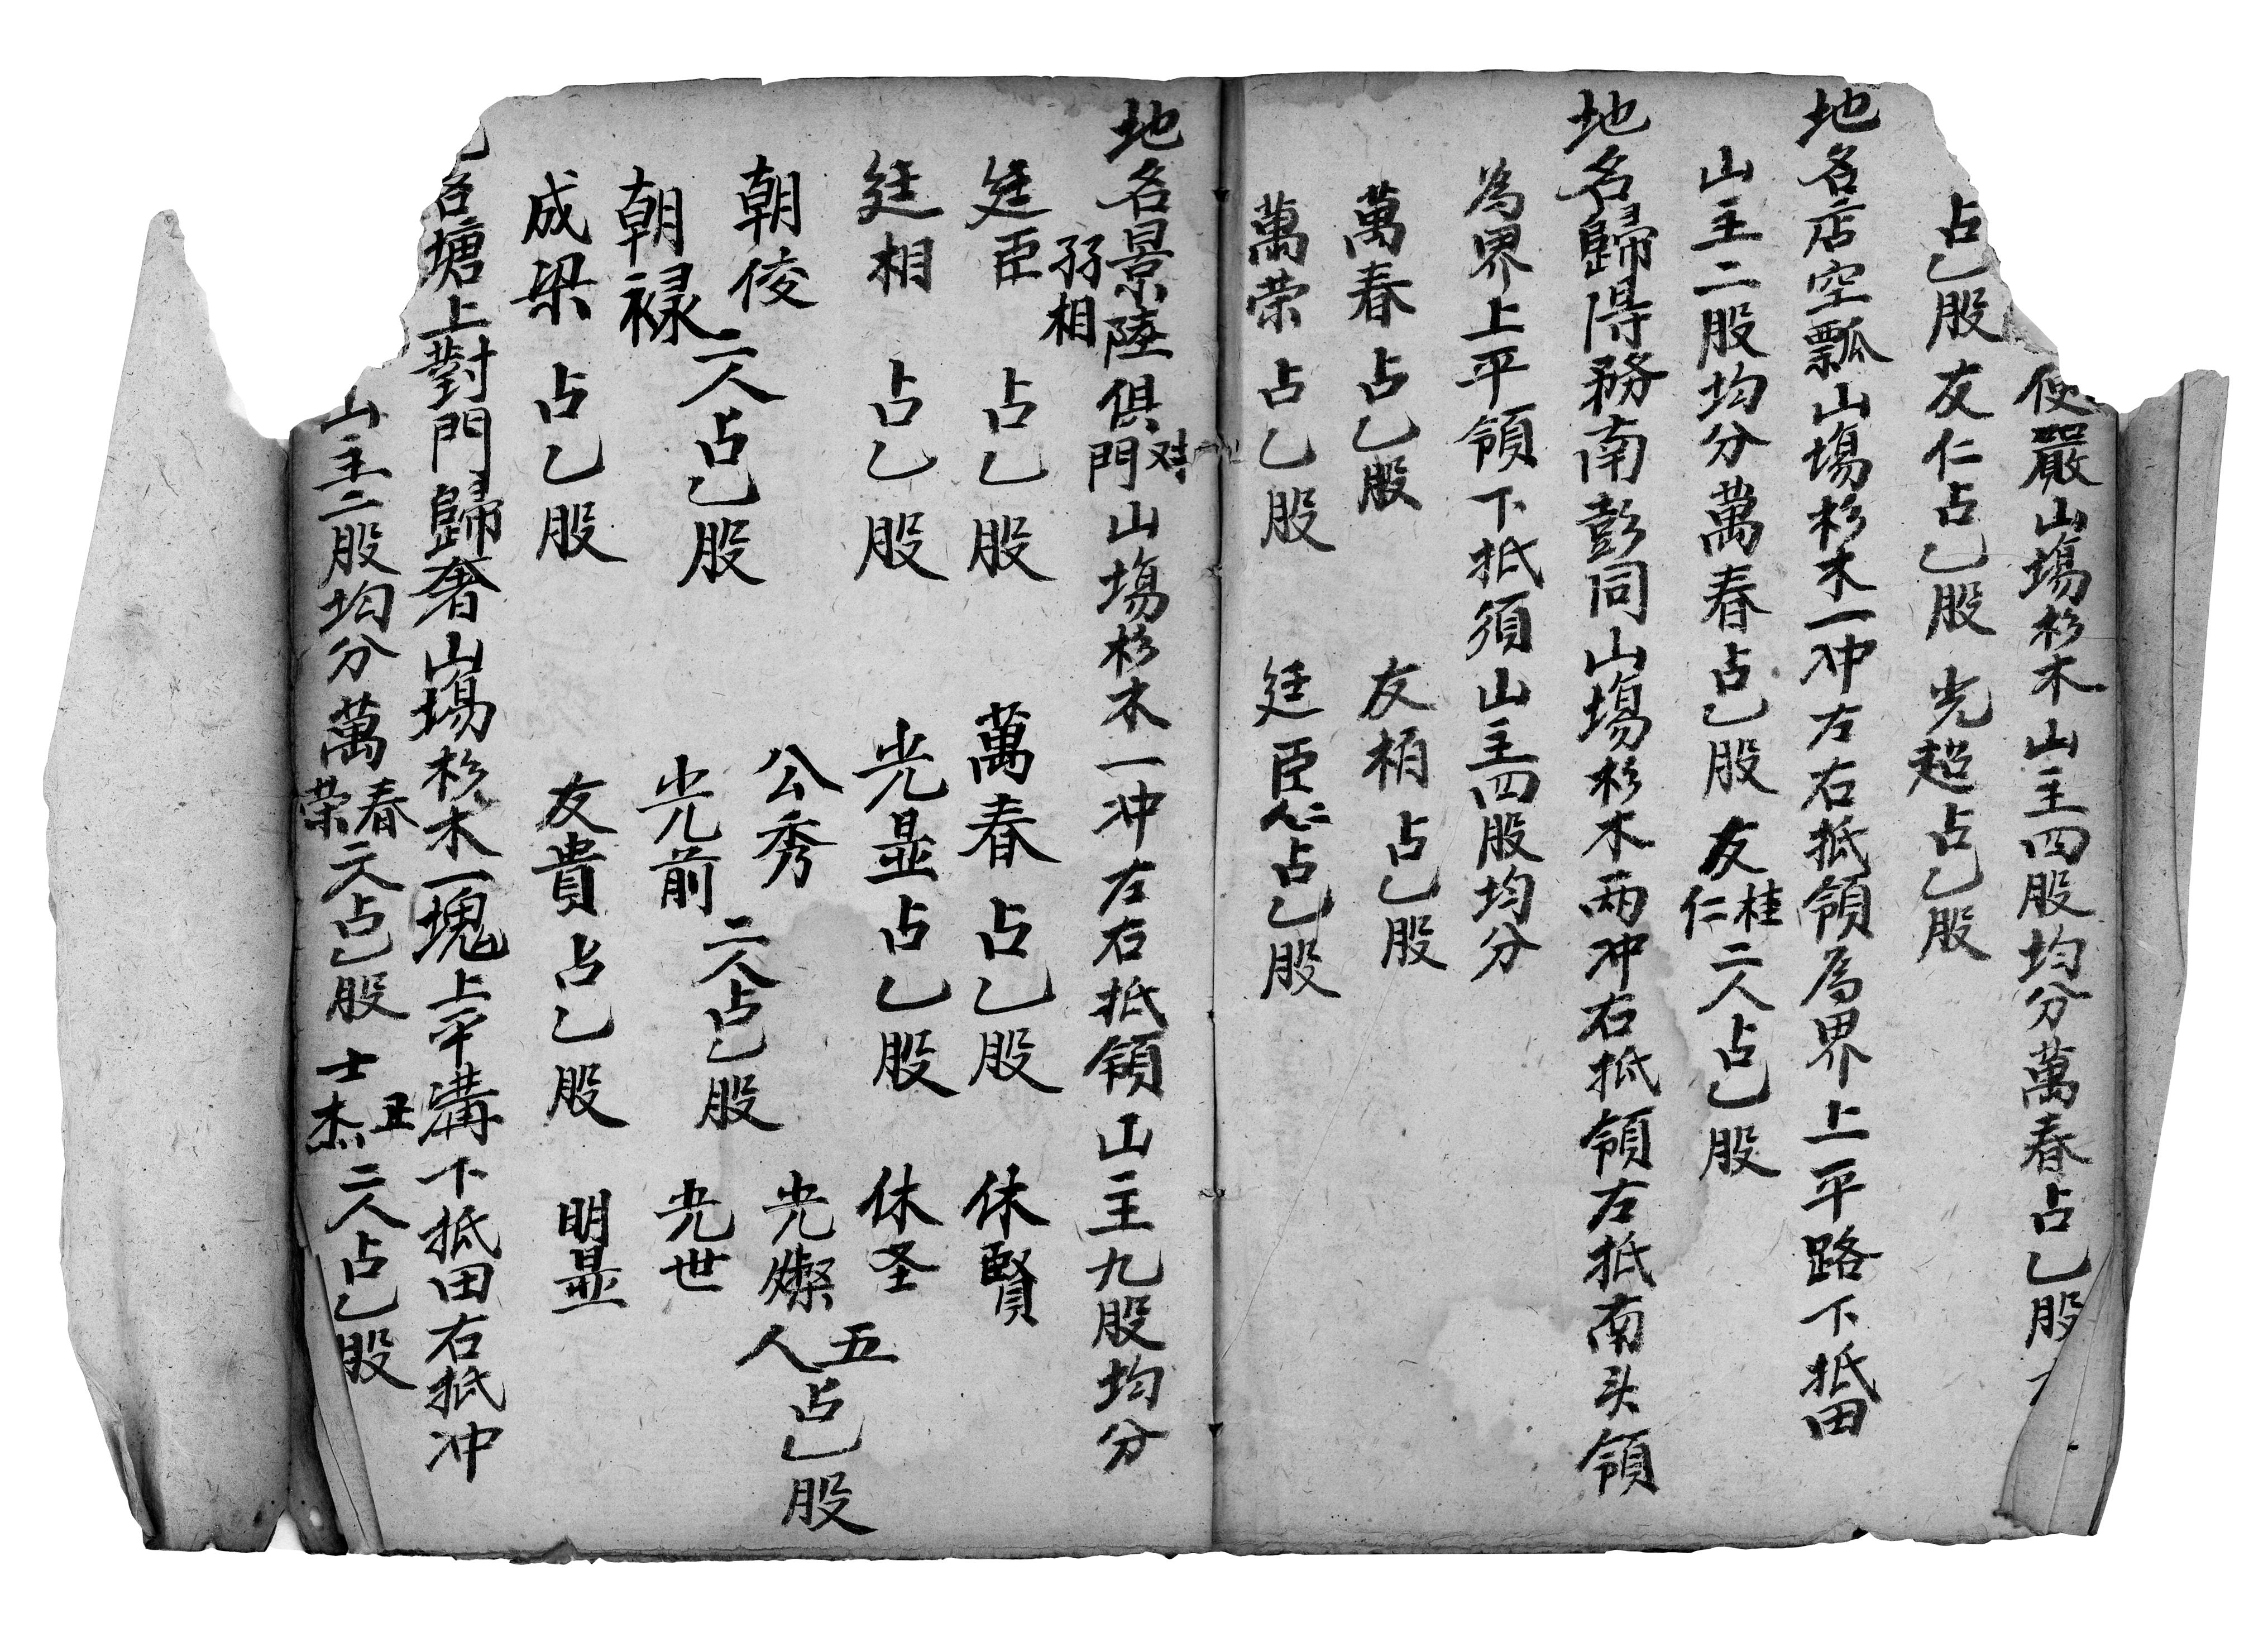 便嚴山塲杉木山主四股均分萬春占乙股
占乙股友仁占乙股光超占乙股
地名店空瓢山塲杉木一冲左右抵領為界上平路下抵田
山主二股均分萬春占乙股友桂仁二人占乙股
地名歸得務南彭同山塲杉木兩冲右抵領左抵南头領
為界上平領下抵須山主四股均分
萬春占乙股 友栢占乙股
萬荣占乙股 廷臣仁占乙股
地名景陸俱对門山塲杉木一冲左右抵領山主九股均分
孖相
廷臣占乙股 萬春占乙股 休賢
廷相占乙股 光显占乙股 休圣
朝俊 公秀 光燦 五人占乙股
朝禄二人占乙股 光前二人占乙股 光世
成梁占乙股 友貴占乙股 明显
名塘上對門歸奢山塲杉木一塊上平溝下抵田右抵冲
山主二股均分萬春荣二人占乙股士丑杰二人占乙股